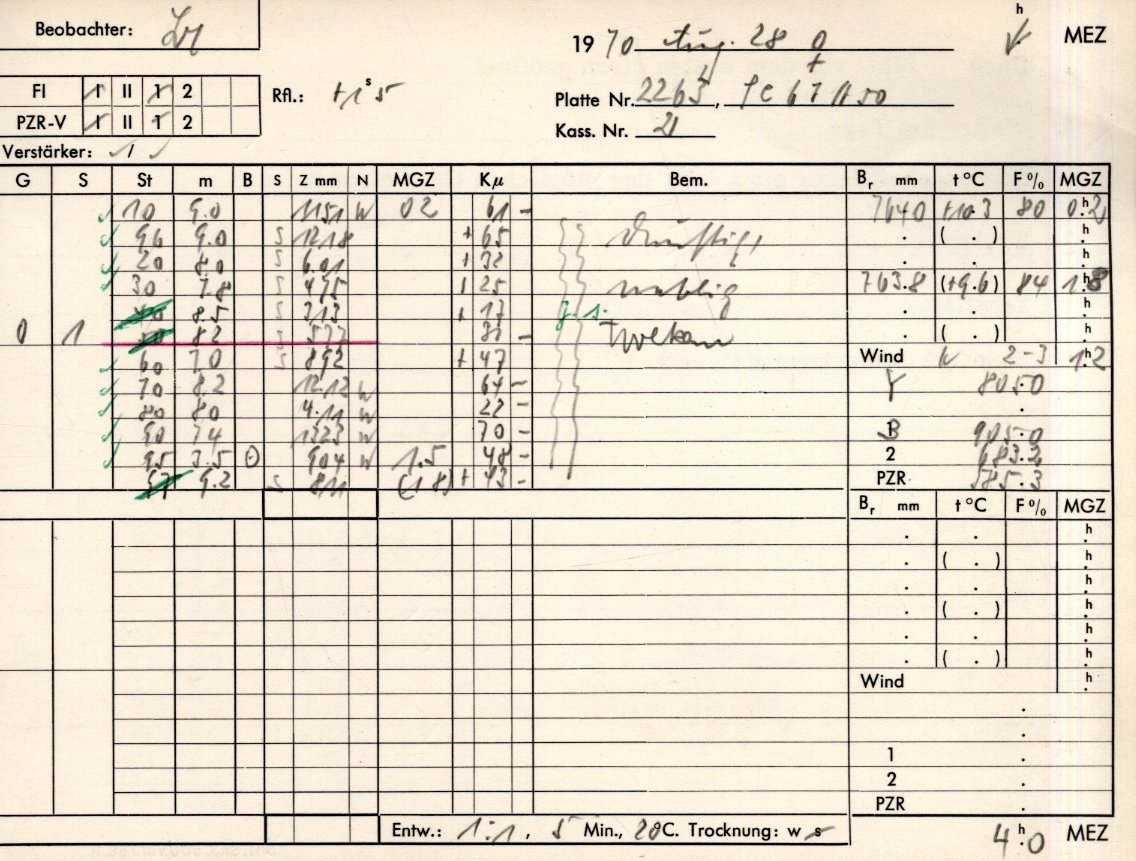 Beobachter:
1970 Aug. 28 0 h MEZ
FI 1 II 1 2
Rfl.: +1 s 5
Platte Nr. 2265,
PZR-V 1 II 1 2
Kass. Nr. 21
Verstärker: 1
G S St m B S Z mm N MGZ Kμ Bem. Br mm t °C F % MGZ
10 9.0 1151 W 02 61 - 764.0 +10.3 80 0.h2
96 9.0 S 1218 + 65 dunstig, . ( . ) h
20 8.0 S 601 + 32 . . h
30 7.8 S 475 + 25 763.8 (+9.6) 84 1.h8
8.5 S 313 + 17 . . h
0 1 8.2 S 577 31 - . ( . ) h
60 7.0 S 892 + 47 Wind 2-3 1.h2
70 8.2 1212 W 64 - 805.0
80 8.0 4.11 W 22 - .
90 7.4 1323 W 70 - 905.0
95 3.5 904 W 1.5 48 - 2 683.2
97 9.2 S 811 (1.8) + 43 - PZR 585.3
Br mm t °C F % MGZ
. . h
. ( . ) h
. . h
. ( . ) h
. . h
. ( . ) h
Wind h
.
.
1 .
2 .
PZR .
Entw.: 1:1, 5 Min., 20°C. Trocknung: w s
4.h0 MEZ